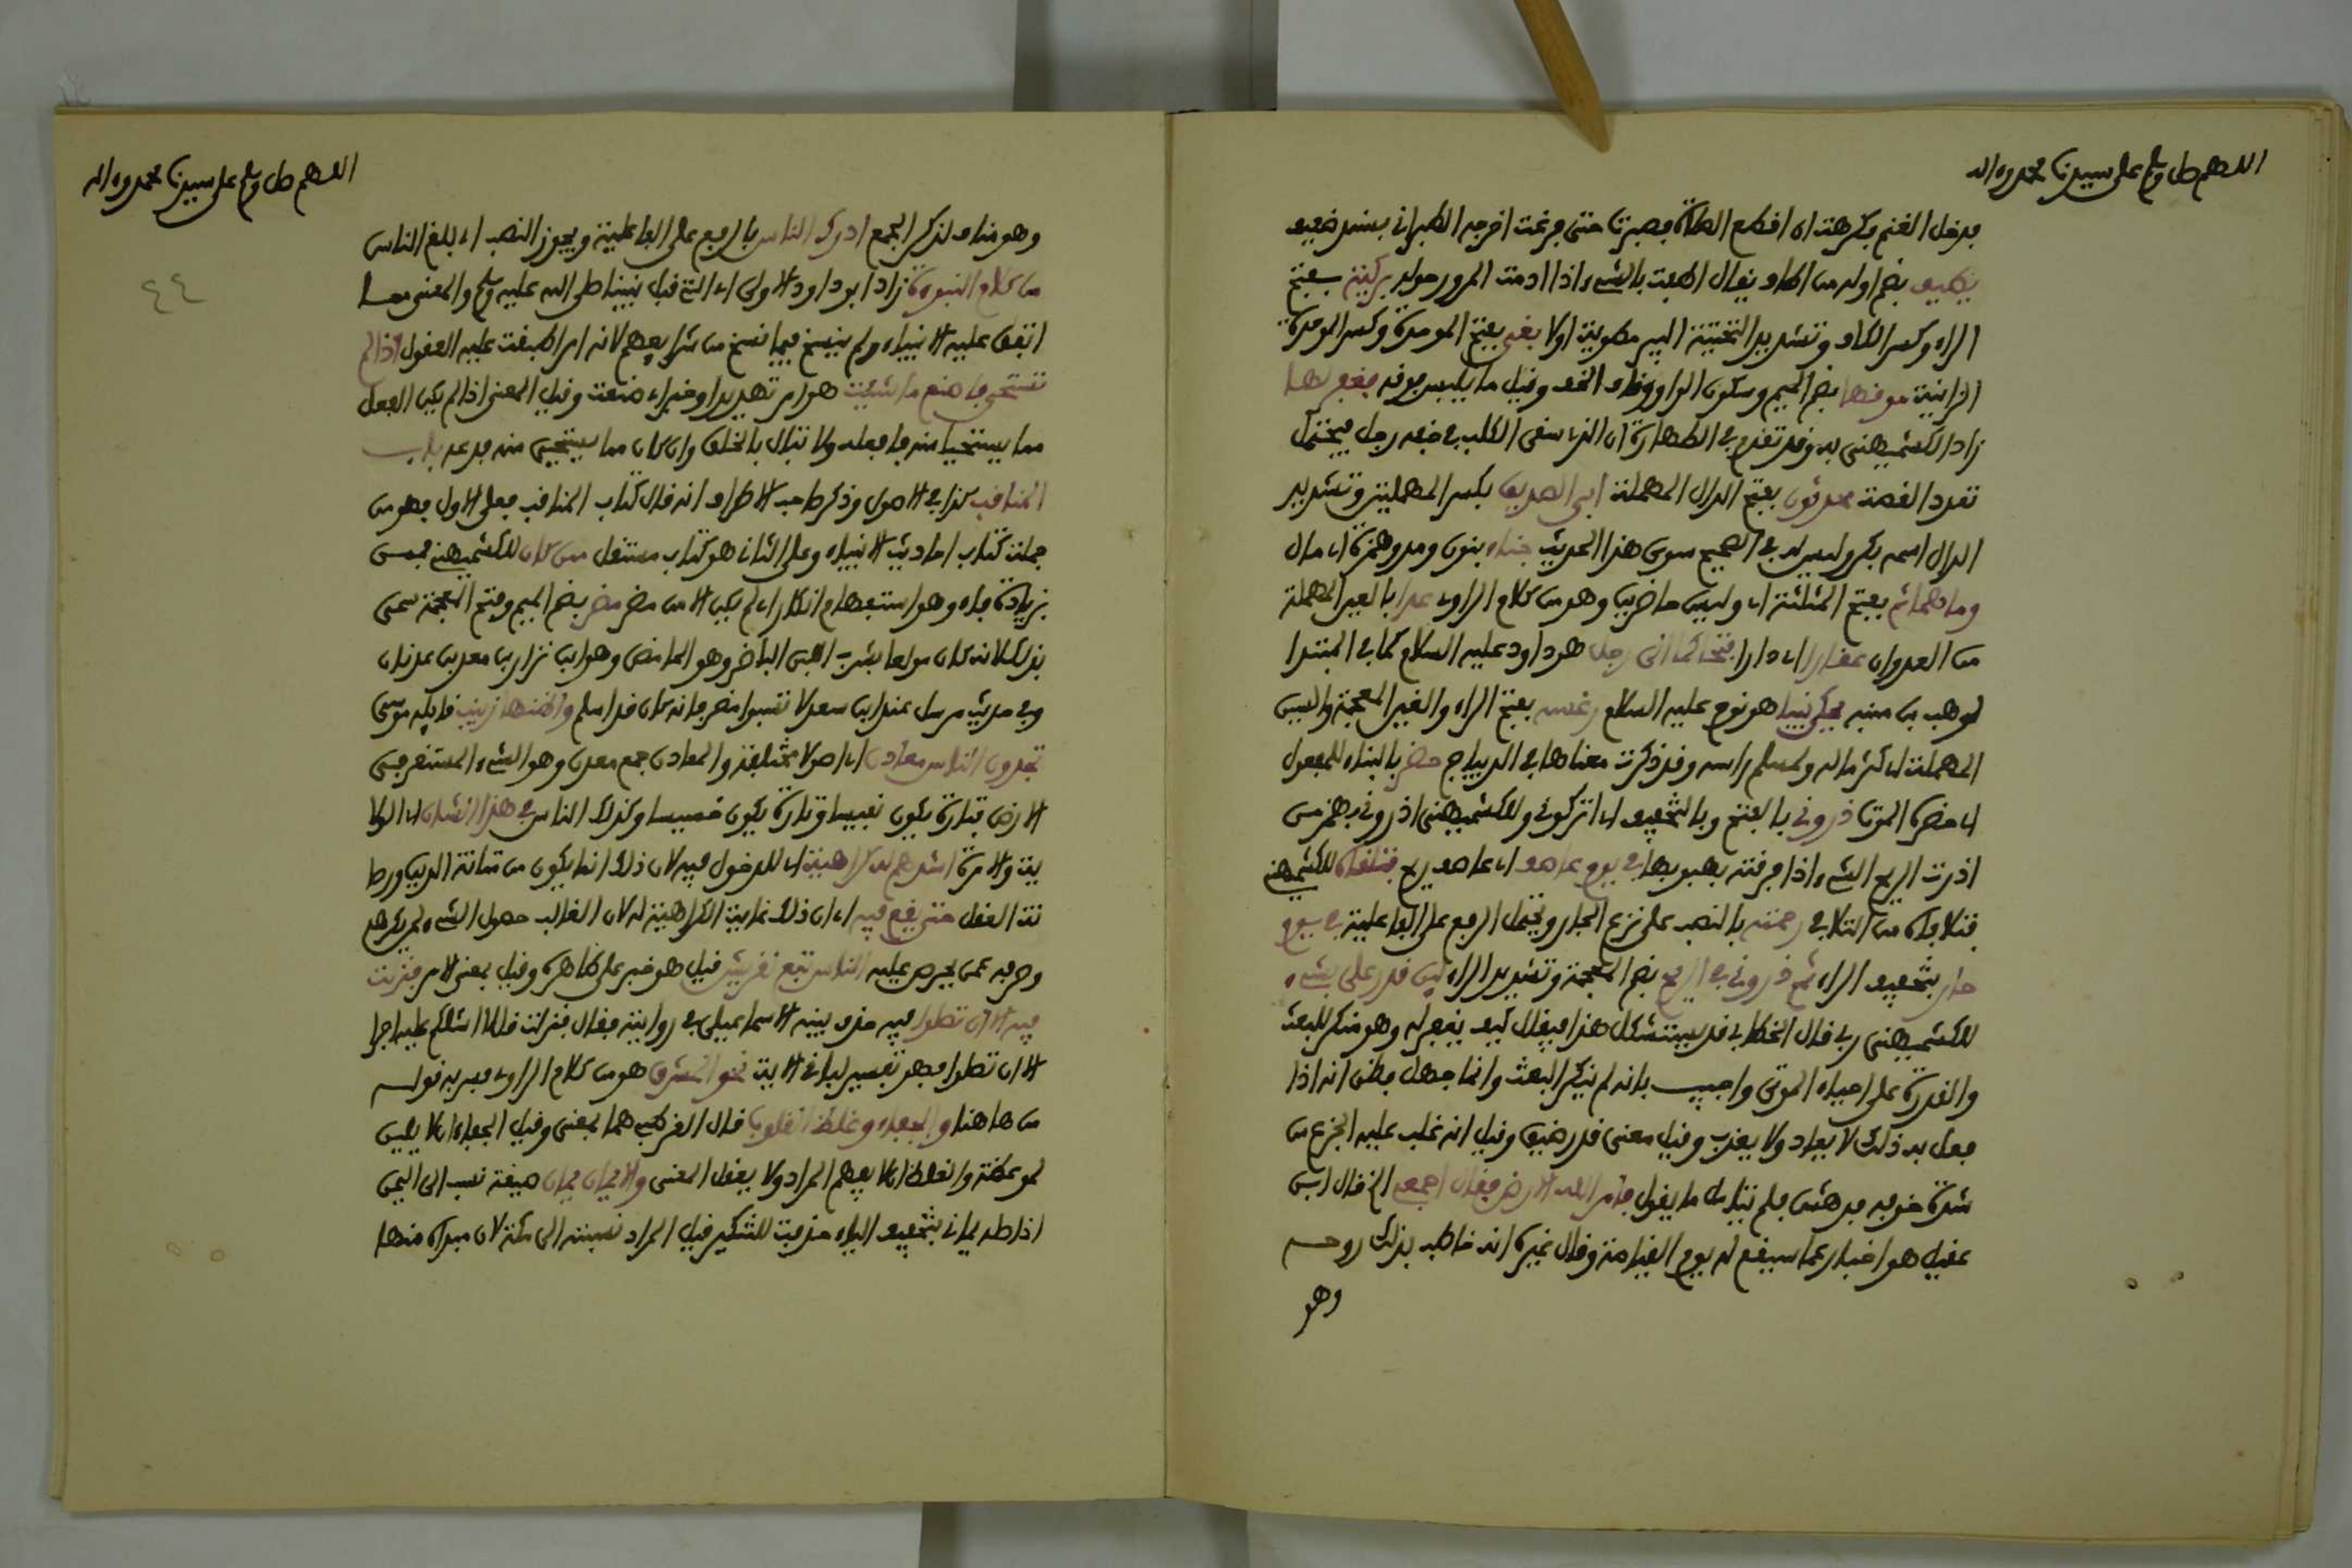 اللهم صل وسلم على سيدنا محمد وءاله
فدخل الغنم فكرهت ان اقطع الصلاة فصبرت حتى فرغت اخرجه الطبراني بسند ضعيف
يطيف بضم اوله من اطاف يقال اطفت بالشيء اذا ادمت المرور حوله بركية بفتح
الراء وكسر الكاف وتشديد التحتية البير مطوية اولا بغي بفتح الموحدة وكسر الموحدة
الزانية موقها بضم الميم وسكون الواو وقاف الخف وقيل ما يلبس فوقه فغفر لها
زاد الكشميهني به وقد تقدم في الطهارة ان الذي سقى الكلب في خفه رجل فيحتمل
تعدد القصة محدثون بفتح الدال المهملة ابي الصديق بكسر المهملة وتشديد
الدال اسمه بكر وليس له في الصحيح سوى هذا الحديث فناء بنون ومد وهمزة اي مال
وما هما ثم بفتح المثلثة اي وليس حاضرين وهو من كلام الراوي عدا بالعين المهملة
من العدوان عقارا اي دارا فتحاكما الى رجل هو داود عليه السلام كما في المبتدا
لوهب بن منبه يحكي نبيا هو نوح عليه السلام رغسه بفتح الراء والغين المعجمة والسين
المهملة اي كثر ماله ولمسلم راسه وقد ذكرت معناها في الديباج حضر بالبناء للمفعول
اي حضره الموت ذروني بالفتح وبالتخفيف اي اتركوني وللكشميهني اذروني بهمز من
اذرت الريح الشيء اذا فرقته بهبوبها في يوم عاصف اي عاصف ريح فتلقاه للكشميهني
فتلافاه من التلافي رحمته بالنصب على نزع الجار ويحتمل الرفع على الفاعلية في يوم
حار بتخفيف الراء ثم ذروني في الريح بضم المعجمة وتشديد الراء لين قدر علي بشيء
للكشميهني ربي قال الخطابي قد يستشكل هذا فيقال كيف يغفر له وهو منكر للبعث
والقدرة على احياء الموتى واجيب بانه لم ينكر البعث وانما جهل فظن انه اذا
فعل به ذلك لا يعاد ولا يعذب وقيل معنى قدر ضيق وقيل انه غلب عليه الجزع من
شدة خوفه فدهش فلم يتمالك ما يقول فامر الله الارض فقال اجمعي الخ قال ابن
عقيل هو اخبار عما سيقع له يوم القيامة وقال غيره انه خاطب بذلك روحه
وهو
اللهم صل وسلم على سيدنا محمد وءاله
٤٤
وهو مناف لذكر الجمع ادرك الناس بالرفع على الفاعلية ويجوز النصب اي بلغ الناس
من كلام النبوة زاد ابو داود الاولى اي التي قبل نبينا صلى الله عليه وسلم والمعنى مما
اتفق عليه الانبياء ولم ينسخ فيما نسخ من شرايعهم لانه امر اطبقت عليه العقول اذا لم
تستحي فاصنع ما شئت هو امر تهديد او خبر اي صنعت وقيل المعنى اذا لم يكن الفعل
مما يستحيا منه فافعله ولا تبال بالخلق وان كان مما يستحيى منه فدعه باب
المناقب كذا في الاصول وذكر صاحب الاطراف انه قال كتاب المناقب فعلى الاول فهو من
جملة كتاب احاديث الانبياء وعلى الثاني هو كتاب مستقل ممن كان للكشميهني فممن
بزيادة فاء وهو استفهام انكار اي لم يكن الا من مضر مضر بضم الميم وفتح المعجمة سمي
بذلك لانه كان مولعا بشرب اللبن الماضر وهو الحامض وهو ابن نزار بن معد بن عدنان
وفي حديث مرسل عند ابن سعد لا تسبوا مضر فانه كان قد اسلم واظنها زينب قايله موسى
تجدون الناس معادن اي اصولا مختلفة والمعادن جمع معدن وهو الشيء المستقر في
الارض فتارة يكون نفيسا وتارة يكون خسيسا وكذلك الناس في هذا الشان اي الولا
ية والامرة اشدهم له كراهية اي للدخول فيه لان ذلك انما يكون من متانة الدين ورجا
نة العقل حتى يقع فيه اي ان ذلك غاية الكراهية له لان الغالب حصول الشيء لمن يكرهه
وصرفه عمن يحرص عليه الناس تبع لقريش قيل هو خبر على ظاهره وقيل بمعنى الامر فنزلت
فيه الا ان تصلوا فيه حذف بينه الاسماعيلي في رواية فقال فنزلت قل لا اسئلكم عليه اجرا
الا ان تصلوا فهو تفسير لما في الاية نحو المشرق هو من كلام الراوي فسر به قوله
من هاهنا والجفاء وغلظ القلوب قال القرطبي هما بمعنى وقيل الجفاء ان لا يلين
لموعظة والغلظ ان لا يفهم المراد ولا يعقل المعنى والايمان يمان صيغة نسب الى اليمن
اذ اصله يماني بتخفيف الياء حذفت للتنكير قيل المراد نسبته الى مكة لان مبداه منها